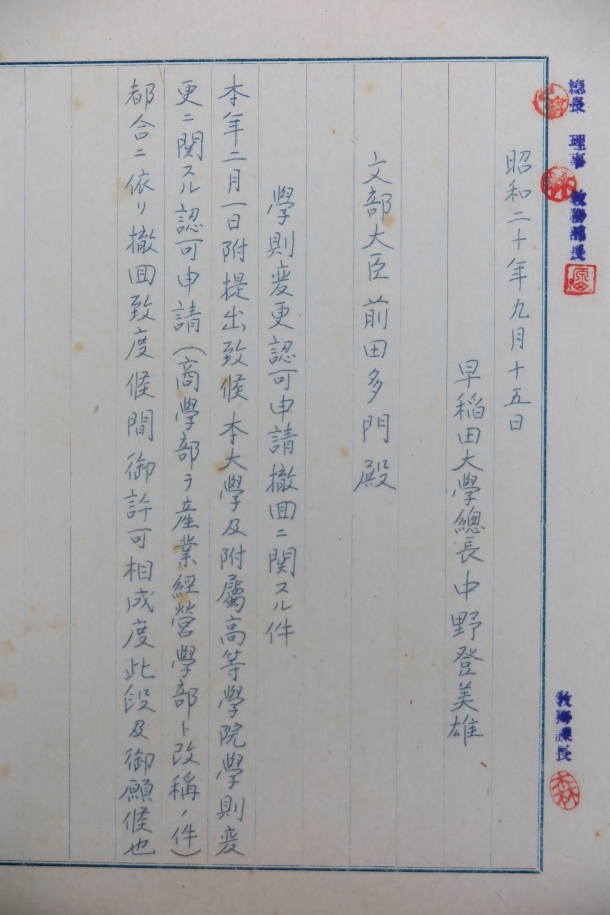 總長 理事 教務部長
昭和二十年九月十五日
早稲田大學總長中野登美雄
文部大臣前田多門殿
學則変更認可申請撤回ニ関スル件
本年二月一日附提出致候本大學及附屬高等學院學則変
更ニ関スル認可申請(商學部ヲ産業経営學部ト改稱ノ件)
都合ニ依リ撤回致度候間御許可相成度此段及御願候也
教務課長
森